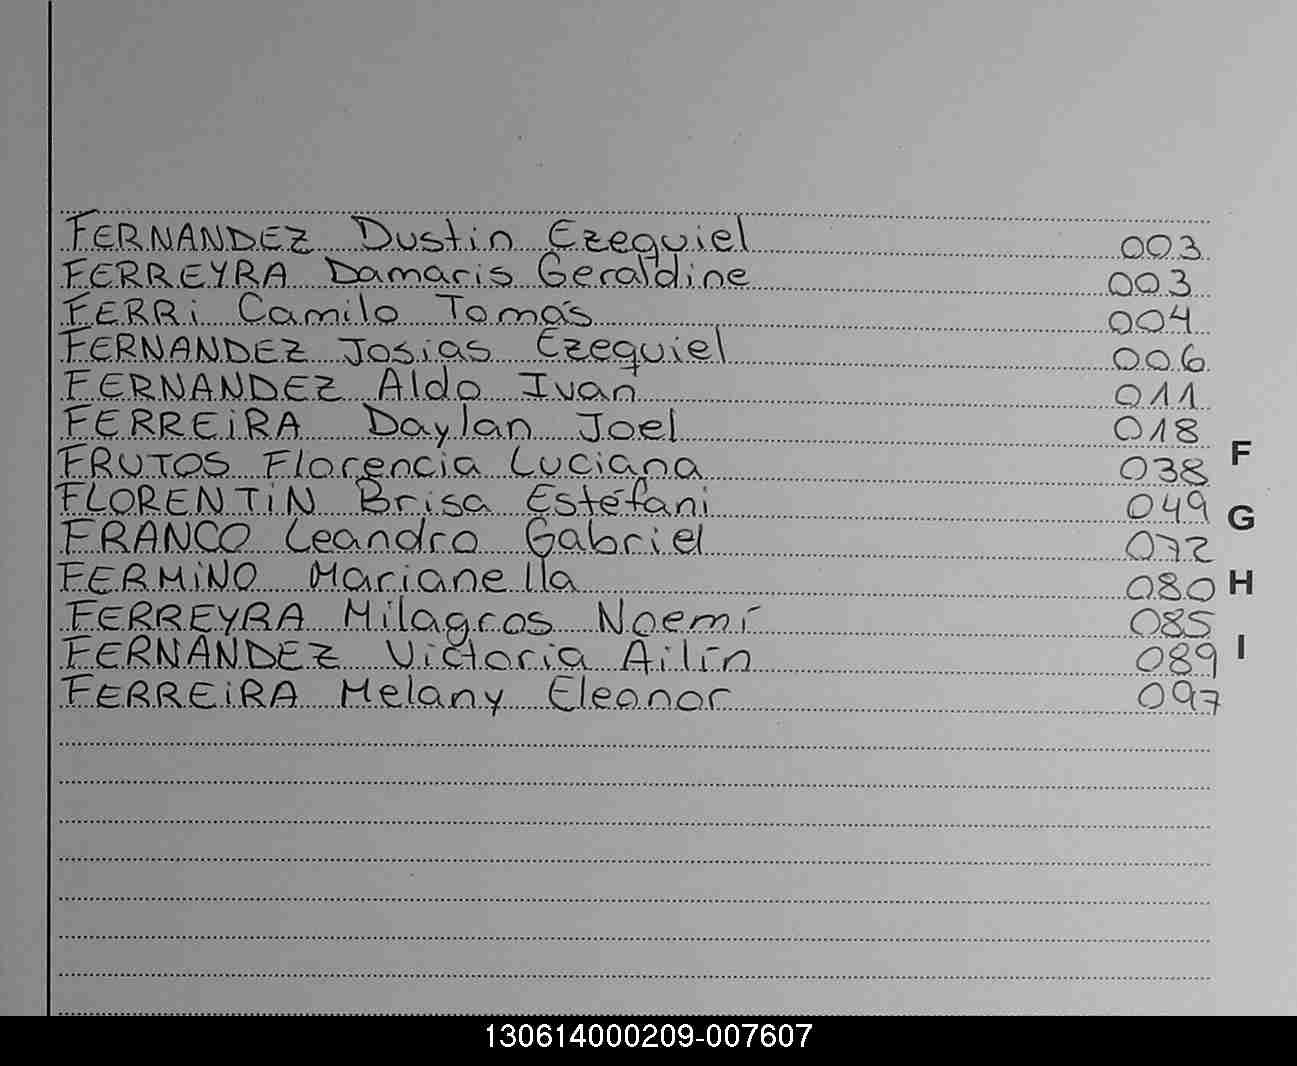 FERNANDEZ Dustin Ezequiel 003
FERREYRA Damaris Geraldine 003
FERRi Camilo Tomás 004
FERNANDEZ Josias Ezequiel 006
FERNANDEZ Aldo Ivan 011
FERREiRA Daylan Joel 018
FRUTOS Florencia Luciana 038
FLORENTiN Brisa Estéfani 049
FRANCO Leandro Gabriel 072
FERMiNO Marianella 080
FERREYRA Milagros Noemí 085
FERNANDEZ Victoria Ailín 089
FERREiRA Melany Eleonor 097
F
G
H
I
130614000209-007607